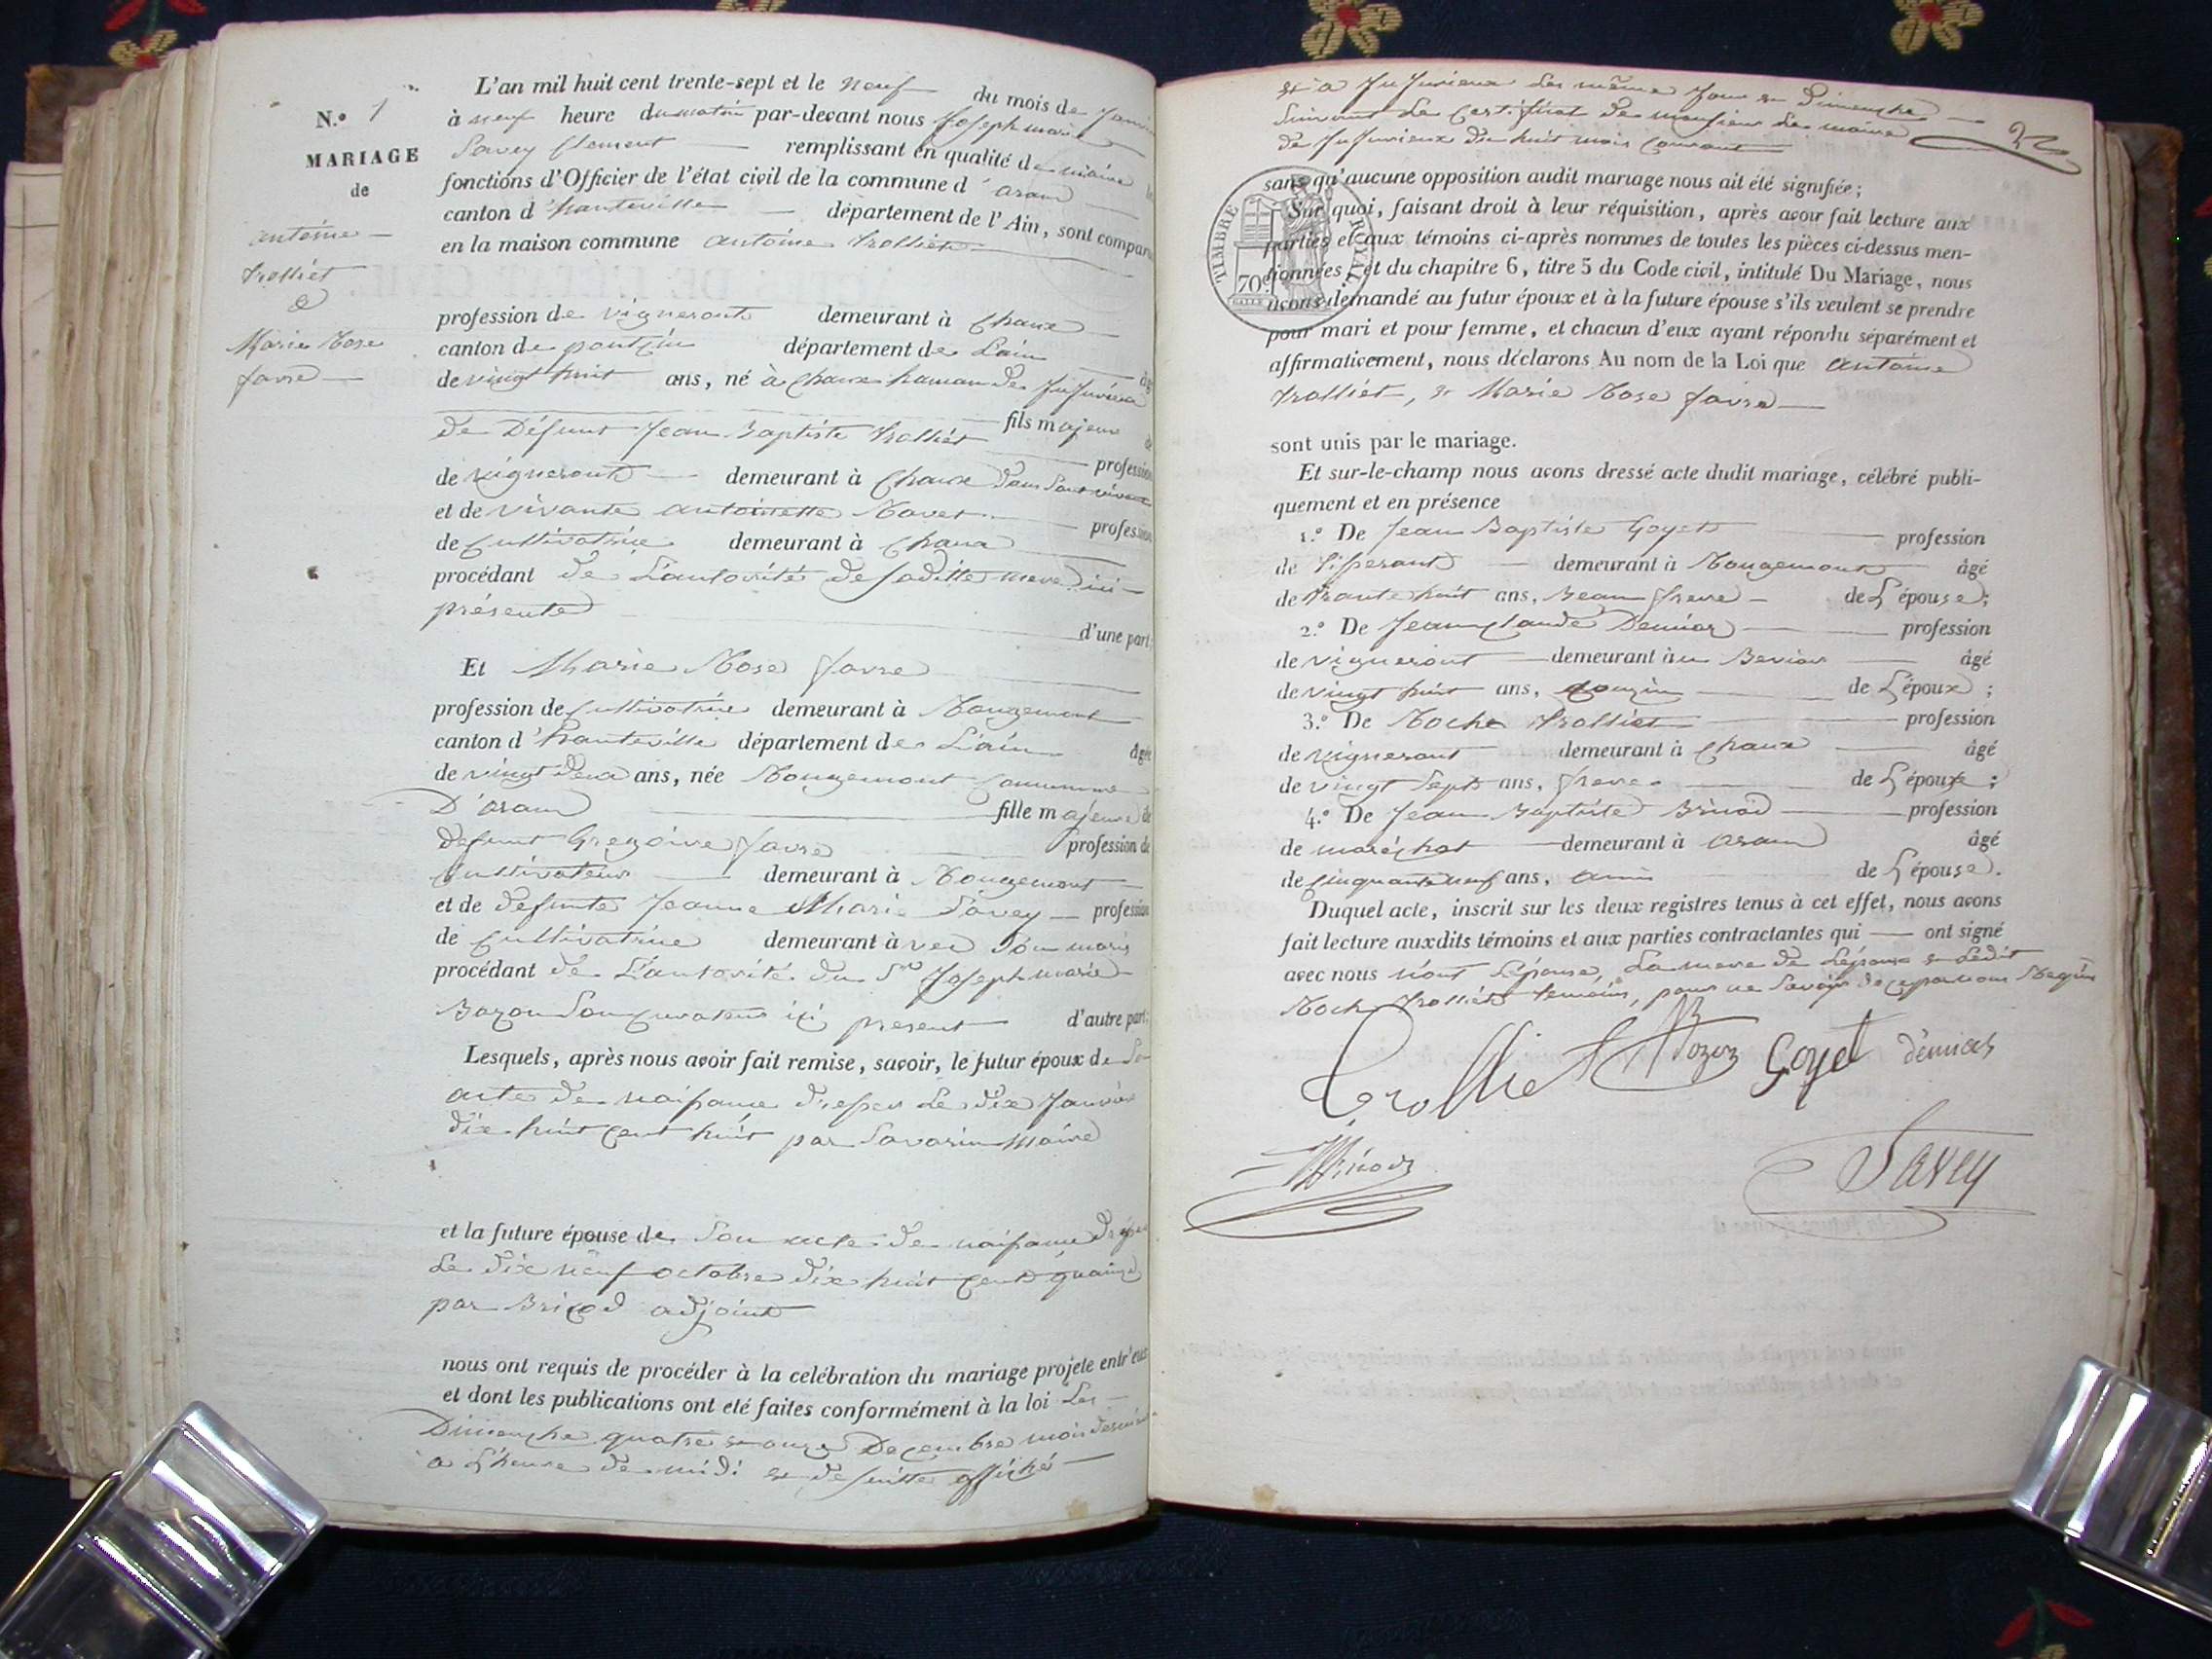 L'an mil huit cent trente-sept et le neuf du mois de Janvier
N.º 1
à neuf heure du matin par-devant nous Joseph marie
MARIAGE
Savey Clement remplissant en qualité de maire
de
fonctions d'Officier de l'état civil de la commune d' aram
canton d'hauteville département de l'Ain, sont comparu
antoine
en la maison commune antoine trolliet
trolliet
&
profession de vigneront demeurant à Chaux
Marie Rose
canton de pontçin département de Lain
favre
de vingt huit ans, né à Chaux hamau de Jujurieu
fils majeur de
de Défunt Jean Baptiste trolliet profession
de vigneront demeurant à Chaux Dans Sont vivant
et de vivante antoinette Ravet profession
de Cultivatrice demeurant à Chaux
procédant de L'autorité de saditte mere ici
présente
d'une part;
Et Marie Rose favre
profession de Cultivatrice demeurant à Rougemont
canton d'hauteville département de L'ain âgée
de vingt deux ans, née Rougemont Commune
D'aram fille majeure de
defunt Gregoire favre profession de
Cultivateur demeurant à Rougemont
et de defunte Jeanne Marie Savey profession
de Cultivatrice demeurant à vec Son maris
procédant de L'autorité du Sr Joseph marie
Bozon Son Curateur ici present d'autre part;
Lesquels, après nous avoir fait remise, savoir, le futur époux de So
acte de naissance dressé Le dix Janvier
dix huit cent huit par Savarin Maire
et la future épouse de Son acte de naissance dressé
Le dix neuf octobre dix huit cent quatorze
par Bricod adjoint
nous ont requis de procéder à la celébration du mariage projete entr'eux
et dont les publications ont eté faites conformément à la loi Les
Dimenche quatre & onze Decembre mois dernier
a L'heure de midi & de suitte affiché
& a Jujurieux Les même Jour & Dimenche
suivant Le Certificat de monsieur Le maire
2
de Jujurieux du huit mois Courant
sans qu'aucune opposition audit mariage nous ait été signifiée;
Sur quoi, faisant droit à leur réquisition, après avoir fait lecture aux
parties et aux témoins ci-après nommes de toutes les pièces ci-dessus men-
tionnées et du chapitre 6, titre 5 du Code civil, intitulé Du Mariage, nous
avons demandé au futur époux et à la future épouse s'ils veulent se prendre
pour mari et pour femme, et chacun d'eux ayant répondu séparément et
affirmativement, nous déclarons Au nom de la Loi que antoine
trolliet, & Marie Rose favre
TIMBRE ROYAL
70c
sont unis par le mariage.
Et sur-le-champ nous avons dressé acte dudit mariage, célébré publi-
quement et en présence
1.º De Jean Baptiste Goyet profession
de tisserant demeurant à Rougemont âgé
de trante huit ans, Beau frere de L'épouse;
2.º De Jean Claude Demiar profession
de vigneront demeurant àu Beviar âgé
de vingt huit ans, Couzin de L'époux;
3.º De Roche trolliet profession
de vigneront demeurant à Chaux âgé
de vingt Sept ans, frere de L'époux;
4.º De Jean Baptiste Bricod profession
de maréchat demeurant à aram âgé
de Cinquante neuf ans, ami de L'épouse.
Duquel acte, inscrit sur les deux registres tenus à cet effet, nous avons
fait lecture auxdits témoins et aux parties contractantes qui ont signé
avec nous nont L'épouse, La mere de L'époux & Ledit
Roch trolliet temoins, pour ne Savoir de ce par nous Requis
Trolliet Bozon Goyet demiar
Bricod Savey